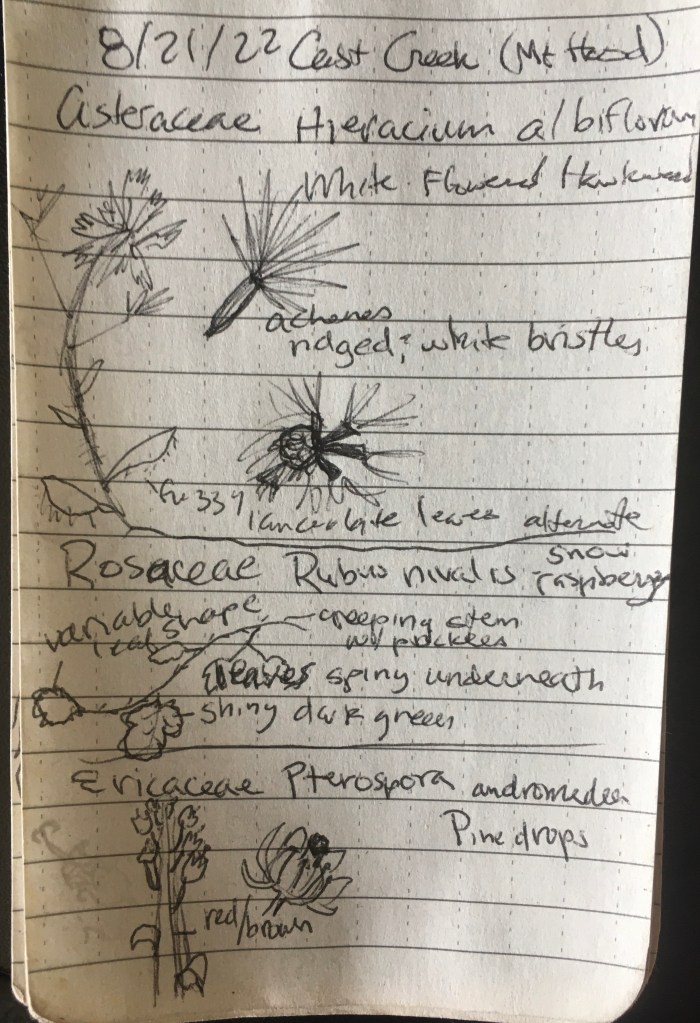 8/21/22 Cast Creek (Mt Hood)
Asteraceae Hieracium albiflorum
White Flowered Hawkweed
achenes
ridged; white bristles
lanceolate leaves alternate
Rosaceae Rubus nivalis snow
raspberry
variable shape
leaf
creeping stem
w/ prickles
leaves spiny underneath
shiny dark green
Ericaceae Pterospora andromedea
Pine drops
red/brown